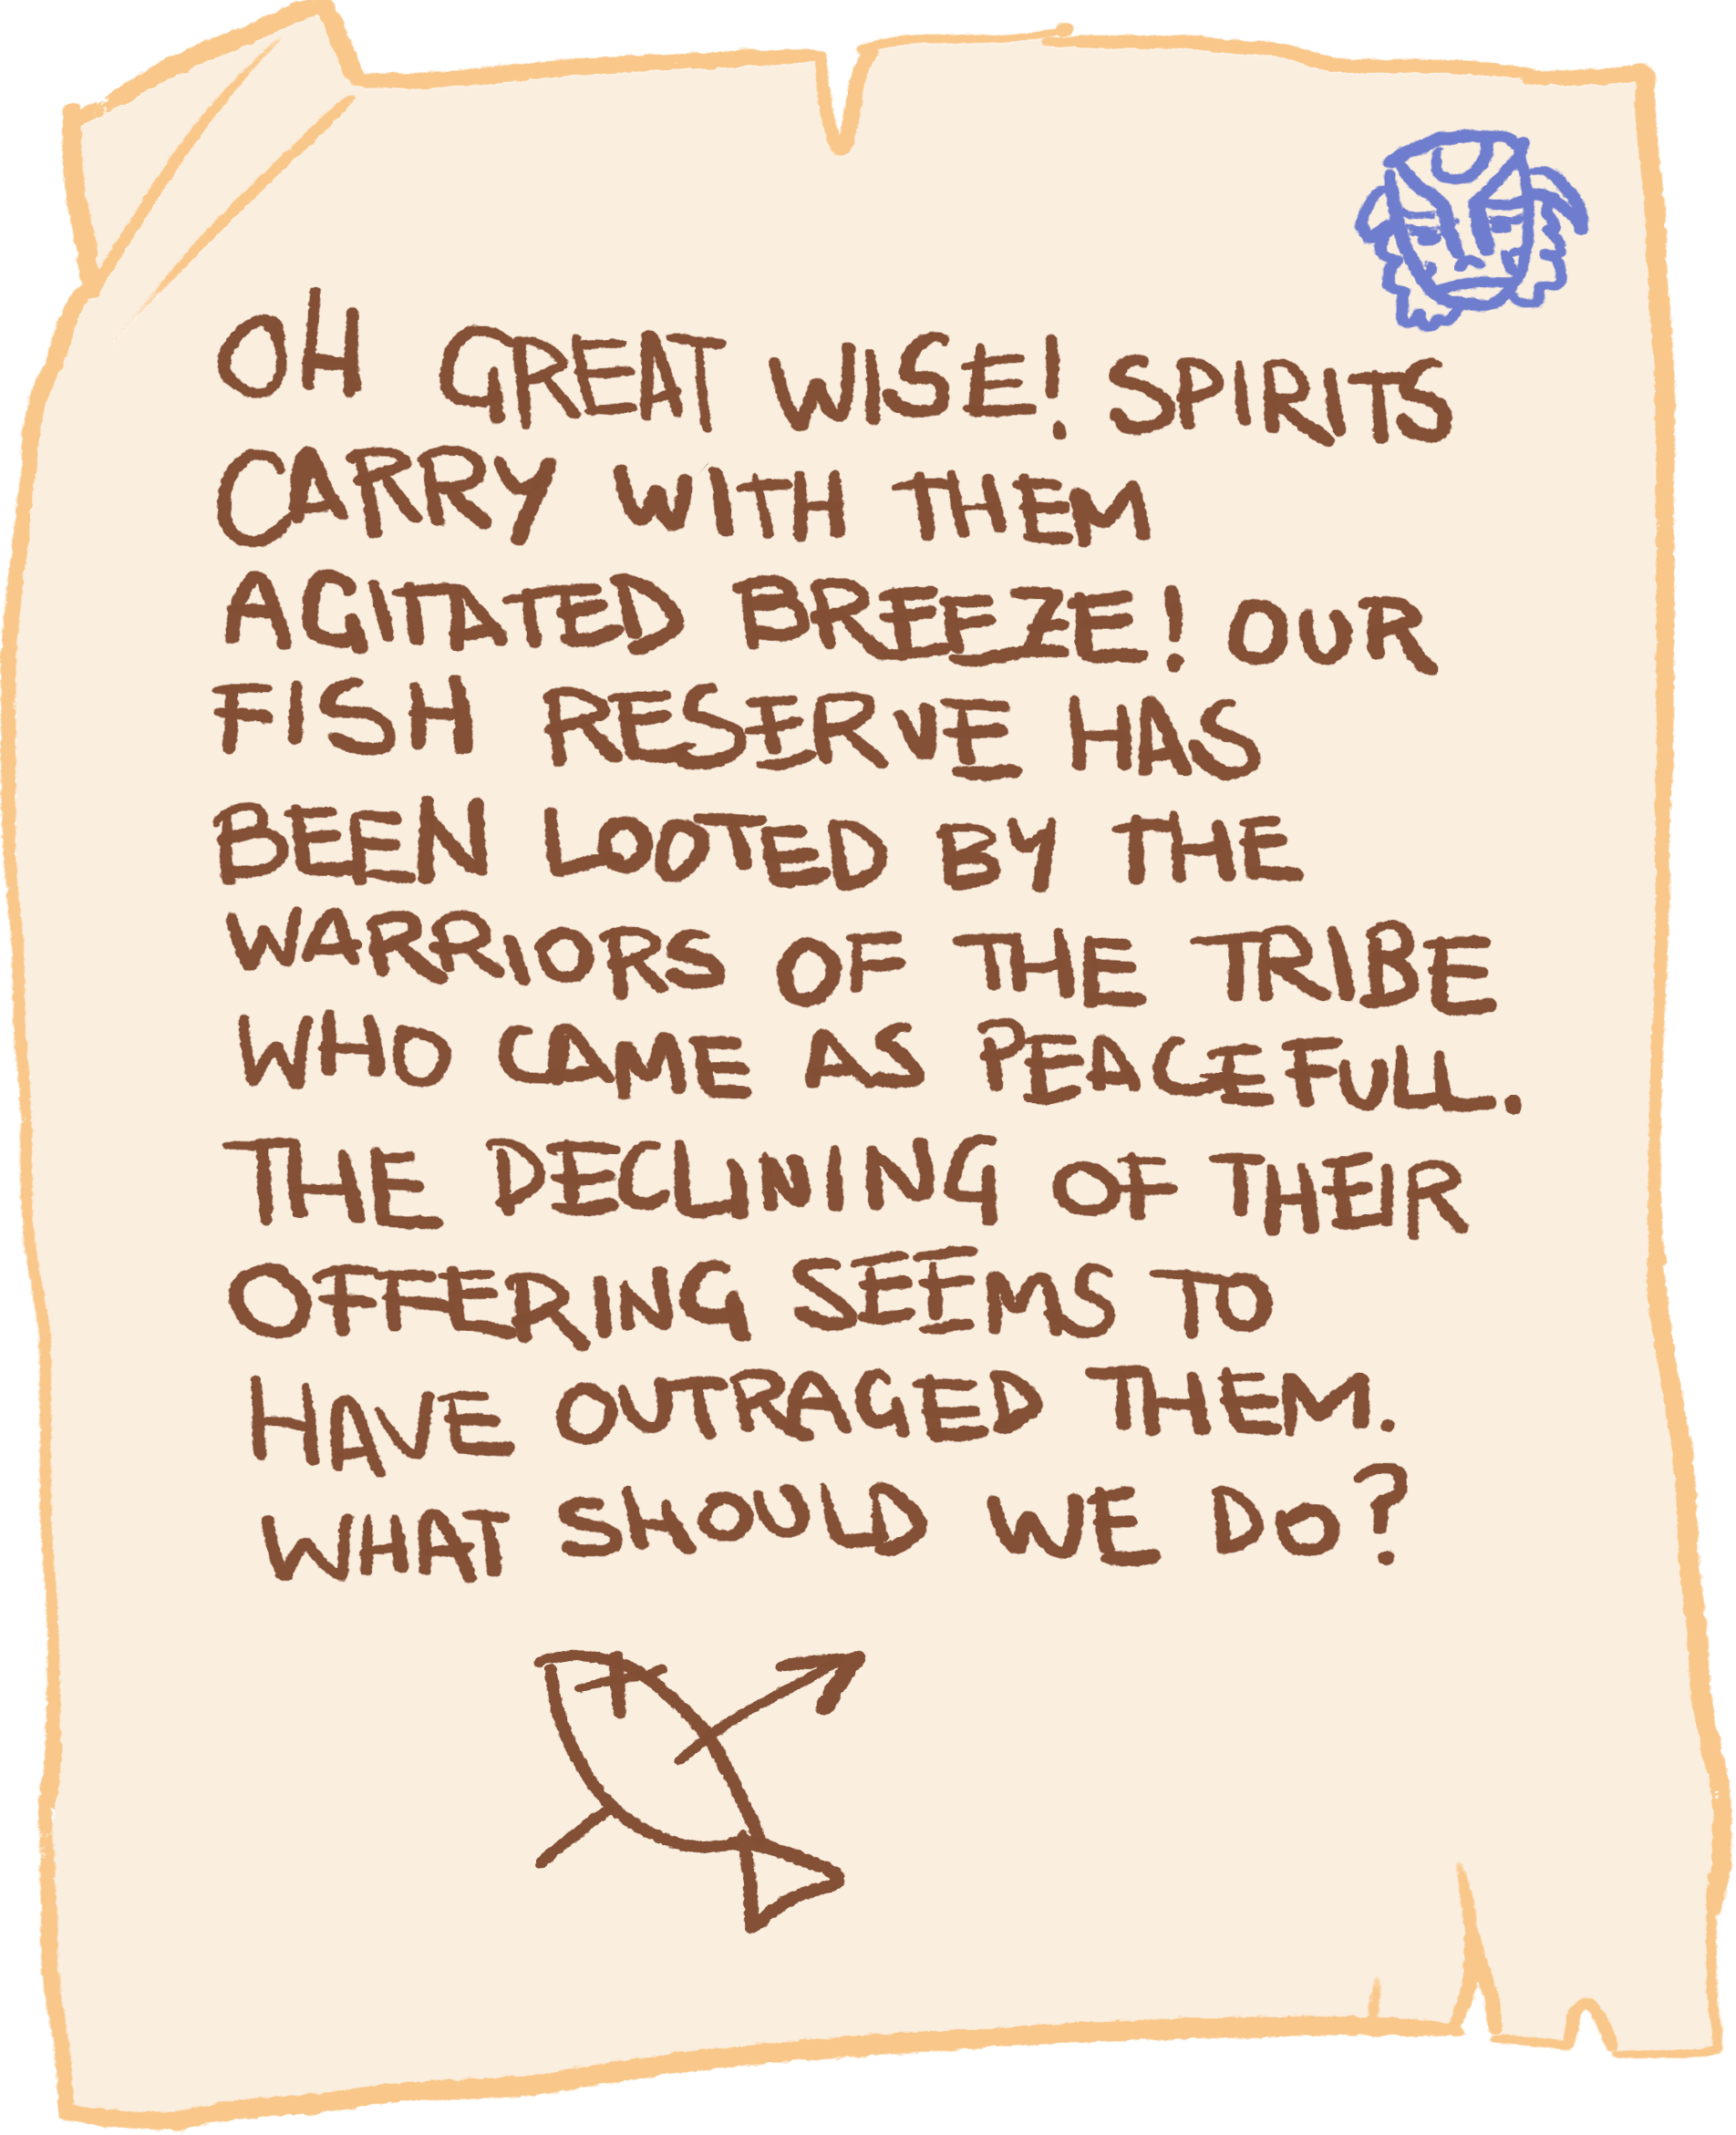 OH GREAT WISE! SPIRITS
CARRY WITH THEM
AGITATED BREEZE! OUR
FISH RESERVE HAS
BEEN LOOTED BY THE
WARRIORS OF THE TRIBE
WHO CAME AS PEACEFULL.
THE DECLINING OF THEIR
OFFERING SEEMS TO
HAVE OUTRAGED THEM.
WHAT SHOULD WE DO?